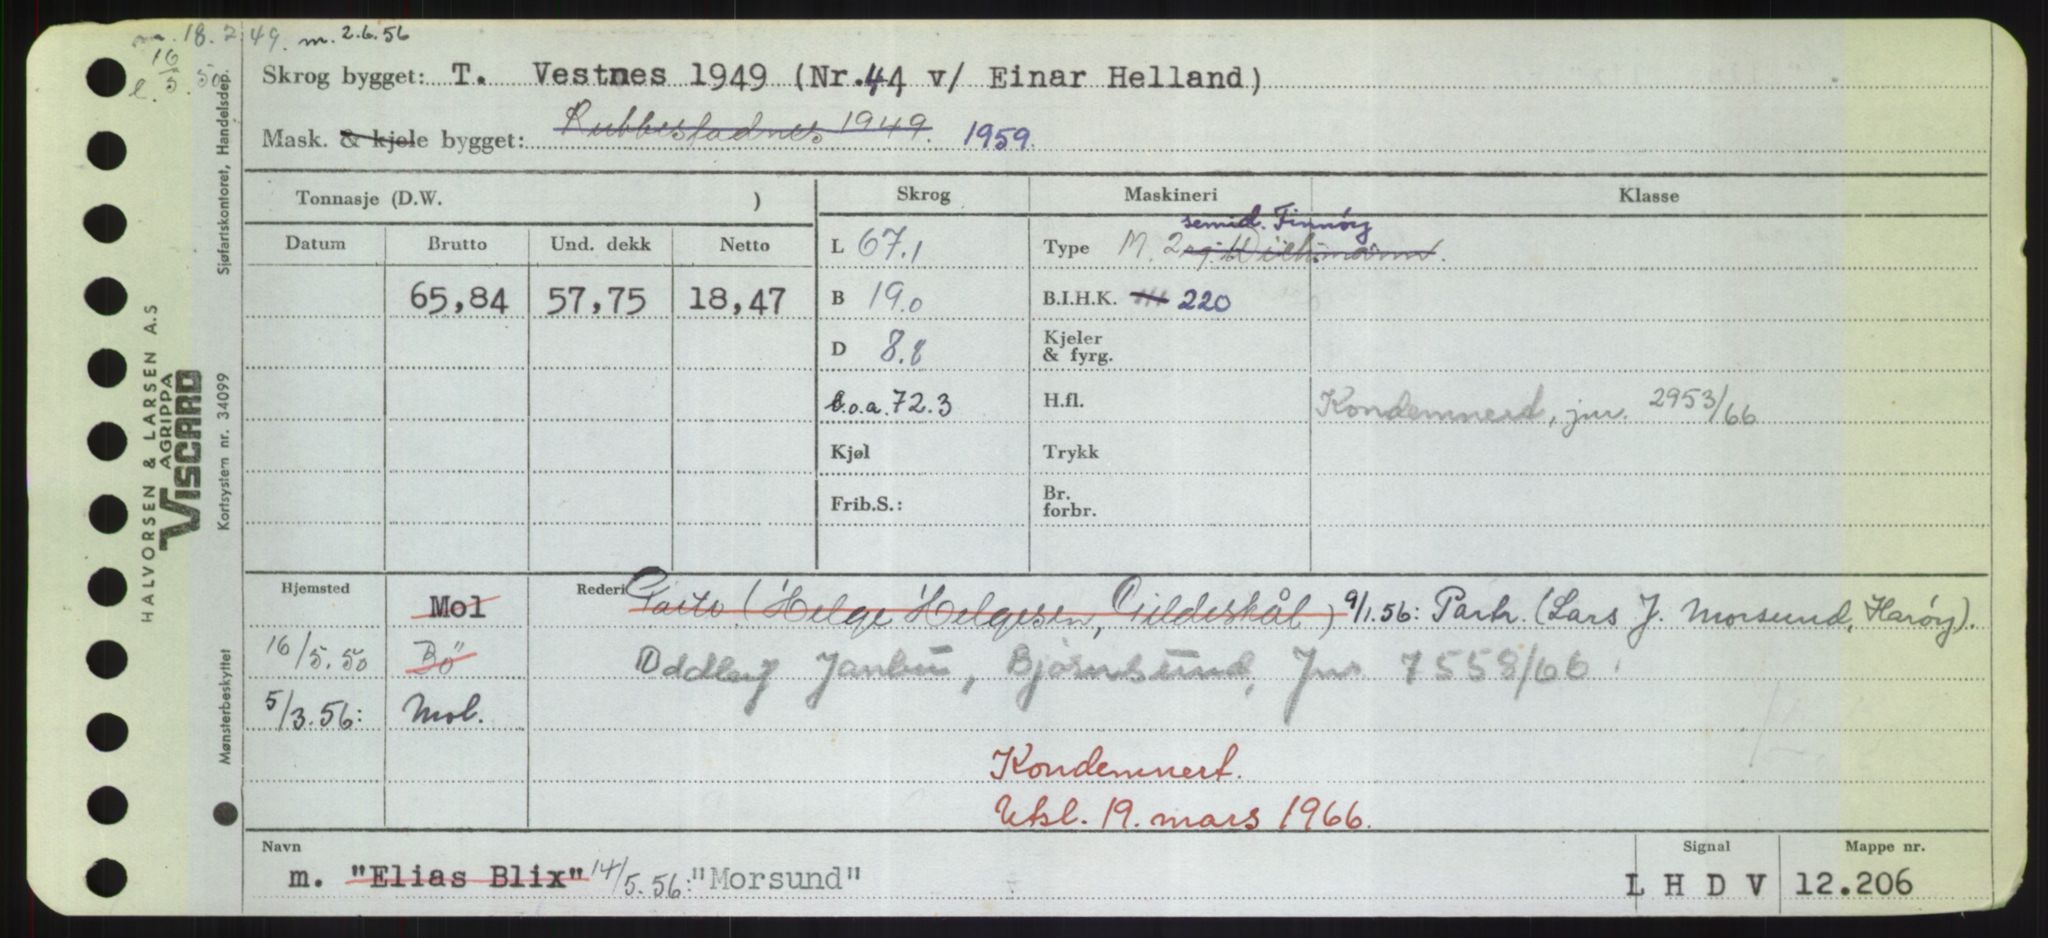 m. 18.2.49. m. 2.6.56
16/5.50
Skrog bygget: T. Vestnes 1949 (Nr.44 v/ Einar Helland)
Mask. & kjele bygget: Rubbestadnes 1949. 1959.
Tonnasje (D.W. )
Skrog
Maskineri
Klasse
Datum Brutto Und. dekk Netto
65,84 57,75 18,47
L 67.1
B 19.0
D 8.8
L.o.a. 72.3
Kjøl
Frib.S.:
semid. Finnöy
Type M. 2 Wichmann.
B.I.H.K. 220
Kjeler & fyrg.
H.fl.
Trykk
Br. forbr.
Kondemnerd, jnr. 2953/66
Hjemsted Mol Rederi Partr. (Helge Helgesen, Gildeskål) 9/1.56: Partr. (Lars J. Morsund, Haröy).
16/5.50 Bö Oddleif Janbu, Björnsund, Jnr 7558/66
5/3.56: Mol.
Kondemnert.
Utsl. 19. mars 1966.
Navn
m. "Elias Blix" 14/5.56: "Morsund"
Signal
L H D V
Mappe nr.
12.206
HALVORSEN & LARSEN A.S
AGRIPPA
VISCARD
Mønsterbeskyttet Kortsystem nr. 34099 Sjøfartskontoret, Handelsdep.